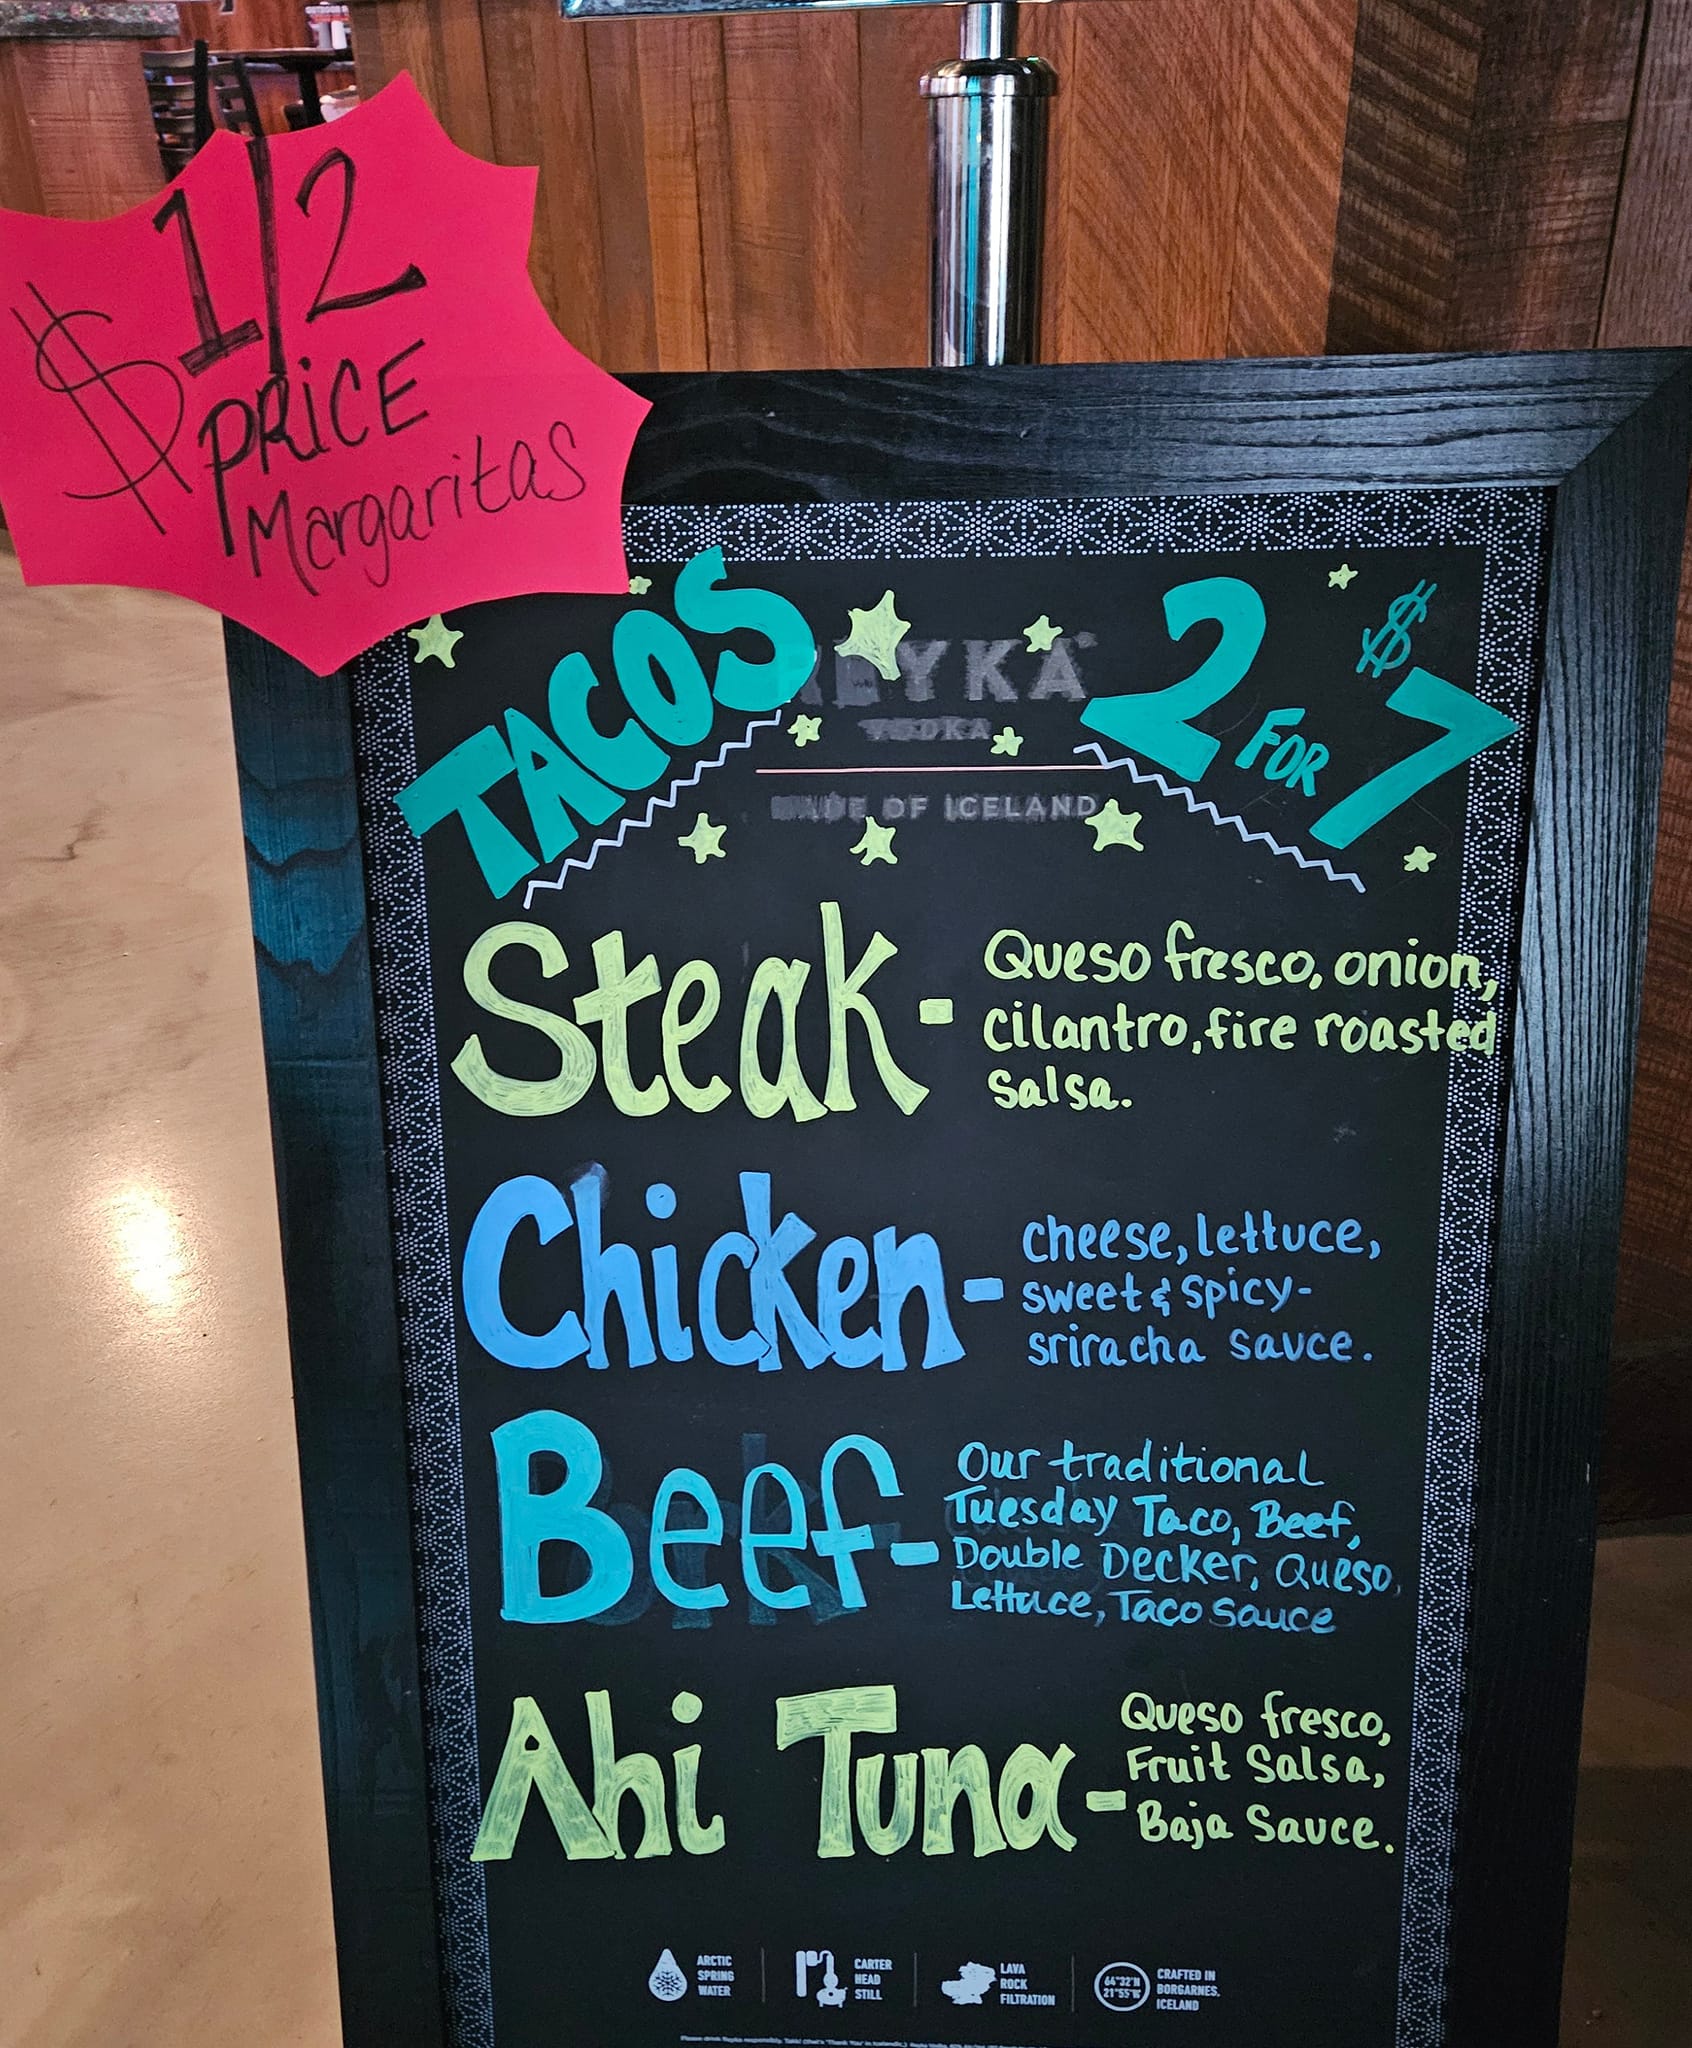 $ 1/2
PRICE
Margaritas
TACOS
2 FOR $7
REYKA
VODKA
MADE OF ICELAND
Steak -
Queso fresco, onion,
cilantro, fire roasted
salsa.
Chicken -
cheese, lettuce,
sweet & spicy-
sriracha sauce.
Beef -
Our traditional
Tuesday Taco, Beef,
Double Decker, Queso,
Lettuce, Taco Sauce
Ahi Tuna -
Queso fresco,
Fruit Salsa,
Baja Sauce.
ARCTIC
SPRING
WATER
CARTER
HEAD
STILL
LAVA
ROCK
FILTRATION
64°32'N
21°55'W
CRAFTED IN
BORGARNES,
ICELAND